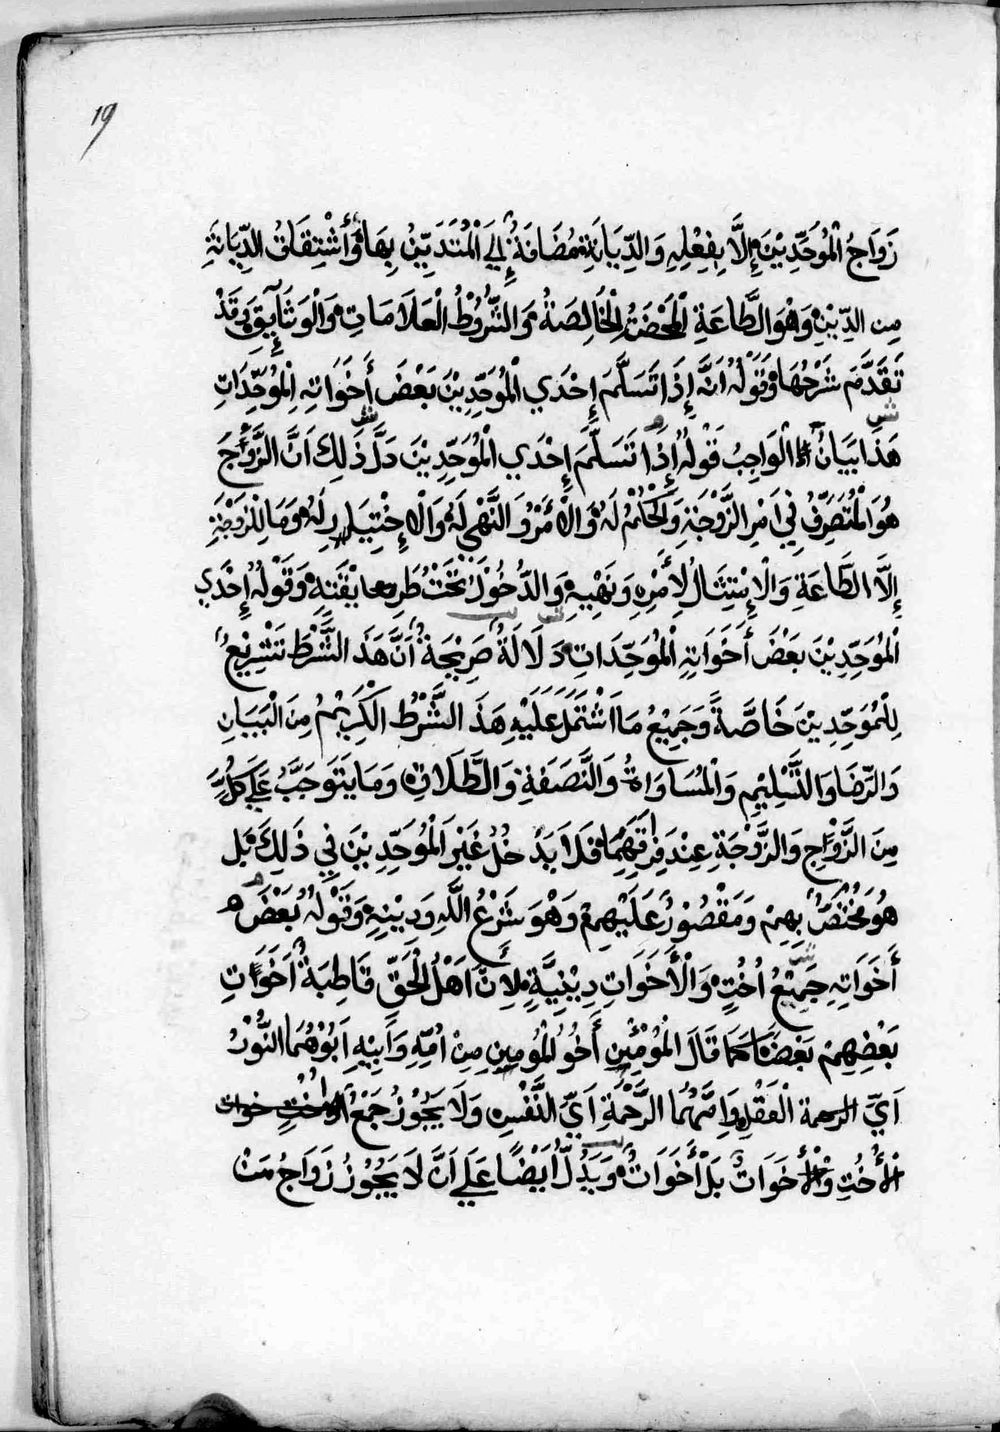 19
زَوَاجُ الْمُوَحِّدِيْنَ إِلَّا بِفِعْلِهِ وَالدِّيَانَةِ مُضَافَةٌ إِلَي الْمُتَدَيِّنُ بِهَا وَأَشْتِقَاقُ الدِّيَانَةِ
مِن الدِّيْنِ وَهْوَ الطَّاعَةِ الْمَحْضَةُ الْخَالِصَةُ وَالشُّرُوْطُ الْعَلَامَاتِ وَالْوَثَآئِقِ وَقَدْ
تَقَدَّمَ شَرْحُهَا وَقَوْلُهُ اَنَّهُ إِذَا تَسَلَّمَ إِحْدَي الْمُوَحِّدِيْنَ بَعْضَ أَخَوَاتِهِ الْمُوَحِّدَاتِ
هَذَا بَيَانٌ الْوَاجِبُ قَوْلُهُ إِذَا تَسَلَّمَ إِحْدَي الْمُوَحِّدِيْنَ دَلَّ ذَلِكَ اَنَّ الزَّوْجَ
هُوَ الْمُتَصَرِّفُ فِي اَمْرِ الزَّوْجَةِ وَالْحُكْمُ لَهُ وَالْاَمْرُ وَالنَّهْي لَهُ وَالْإِخْتِيَارِ لَهُ وَمَا لِلزَوْجَةِ
إِلَّا الطَّاعَةِ وَالْإِمْتِثَالُ لِأَمْرِهِ وَنَهْيِهِ وَالدُّخُوْلُ تَحْتُ طَرِيقَتِهِ وَقَوْلُهُ إِحْدَي
الْمُوَحِّدِيْنَ بَعْضَ أَخَوَاتِهِ الْمُوَحِّدَاتِ دَلَالَةٌ صَرِيْحَةٌ اَنَّ هَذَ الشَّرْطَ تَشْرِيْعٌ
لِلْمُوَحِّدِيْنَ خَاصَّةً وَجَمِيْعُ مَا اشْتَمَلَ عَلَيْهِ هَذَ الشَّرْطِ الْكَرِيْمُ مِنَ الْبَيَانِ
وَالرِّضَا وَالتَّسْلِيْمِ وَالْمُسَاوَاةُ وَالنَّصَفَةِ وَالطَّلَاقِ وَمَا يَتَوَجَّبُ عَلَي كُلٍّ
مِنَ الزَّوْجِ وَالزَّوْجَةِ عِنْدَ فِرَاقِهِمَا فَلَا يَدْخُلُ غَيْرَ الْمُوَحِّدِيْنَ فِي ذَلِكَ بَل
هُوَ مُخْتَصٌ بِهِمْ وَمَقْصُوْرٌ عَلَيْهِمْ وَهْوَ شَرْعُ اللَّهِ وَدِيْنِهِ وَقَوْلُهُ بَعْضَ
أَخَوَاتِهِ جَمِيْعُ اُخْتٍ وَالْأَخَوَاتِ دِيْنِيَّةٍ لِاَنَّ اَهْلُ الْحَقِّ قَاطِبَةٌ اَخَوَاتِ
بَعْضِهِمْ بَعْضًا كَمَا قَالَ الْمُؤْمِنِ أَخُو الْمُومِنِ مِنْ اُمِّهِ وَأَبِيْهِ اَبُوْهُمَا النُّوْرُ
اَيِّ الْعَقْلِ وَاُمُّهُمَا الرَّحْمَةِ اَيِّ النَّفْسِ وَلَا يَجُوْزُ جَمْعُ
الْأُخْتِ وَالْأَخَوَاتْ بَلْ أَخَوَاتْ وَيَدُلُّ اَيْضًا عَلَي اَنَّ لَا يَجُوْزُ زَوَاجُ مَنْ